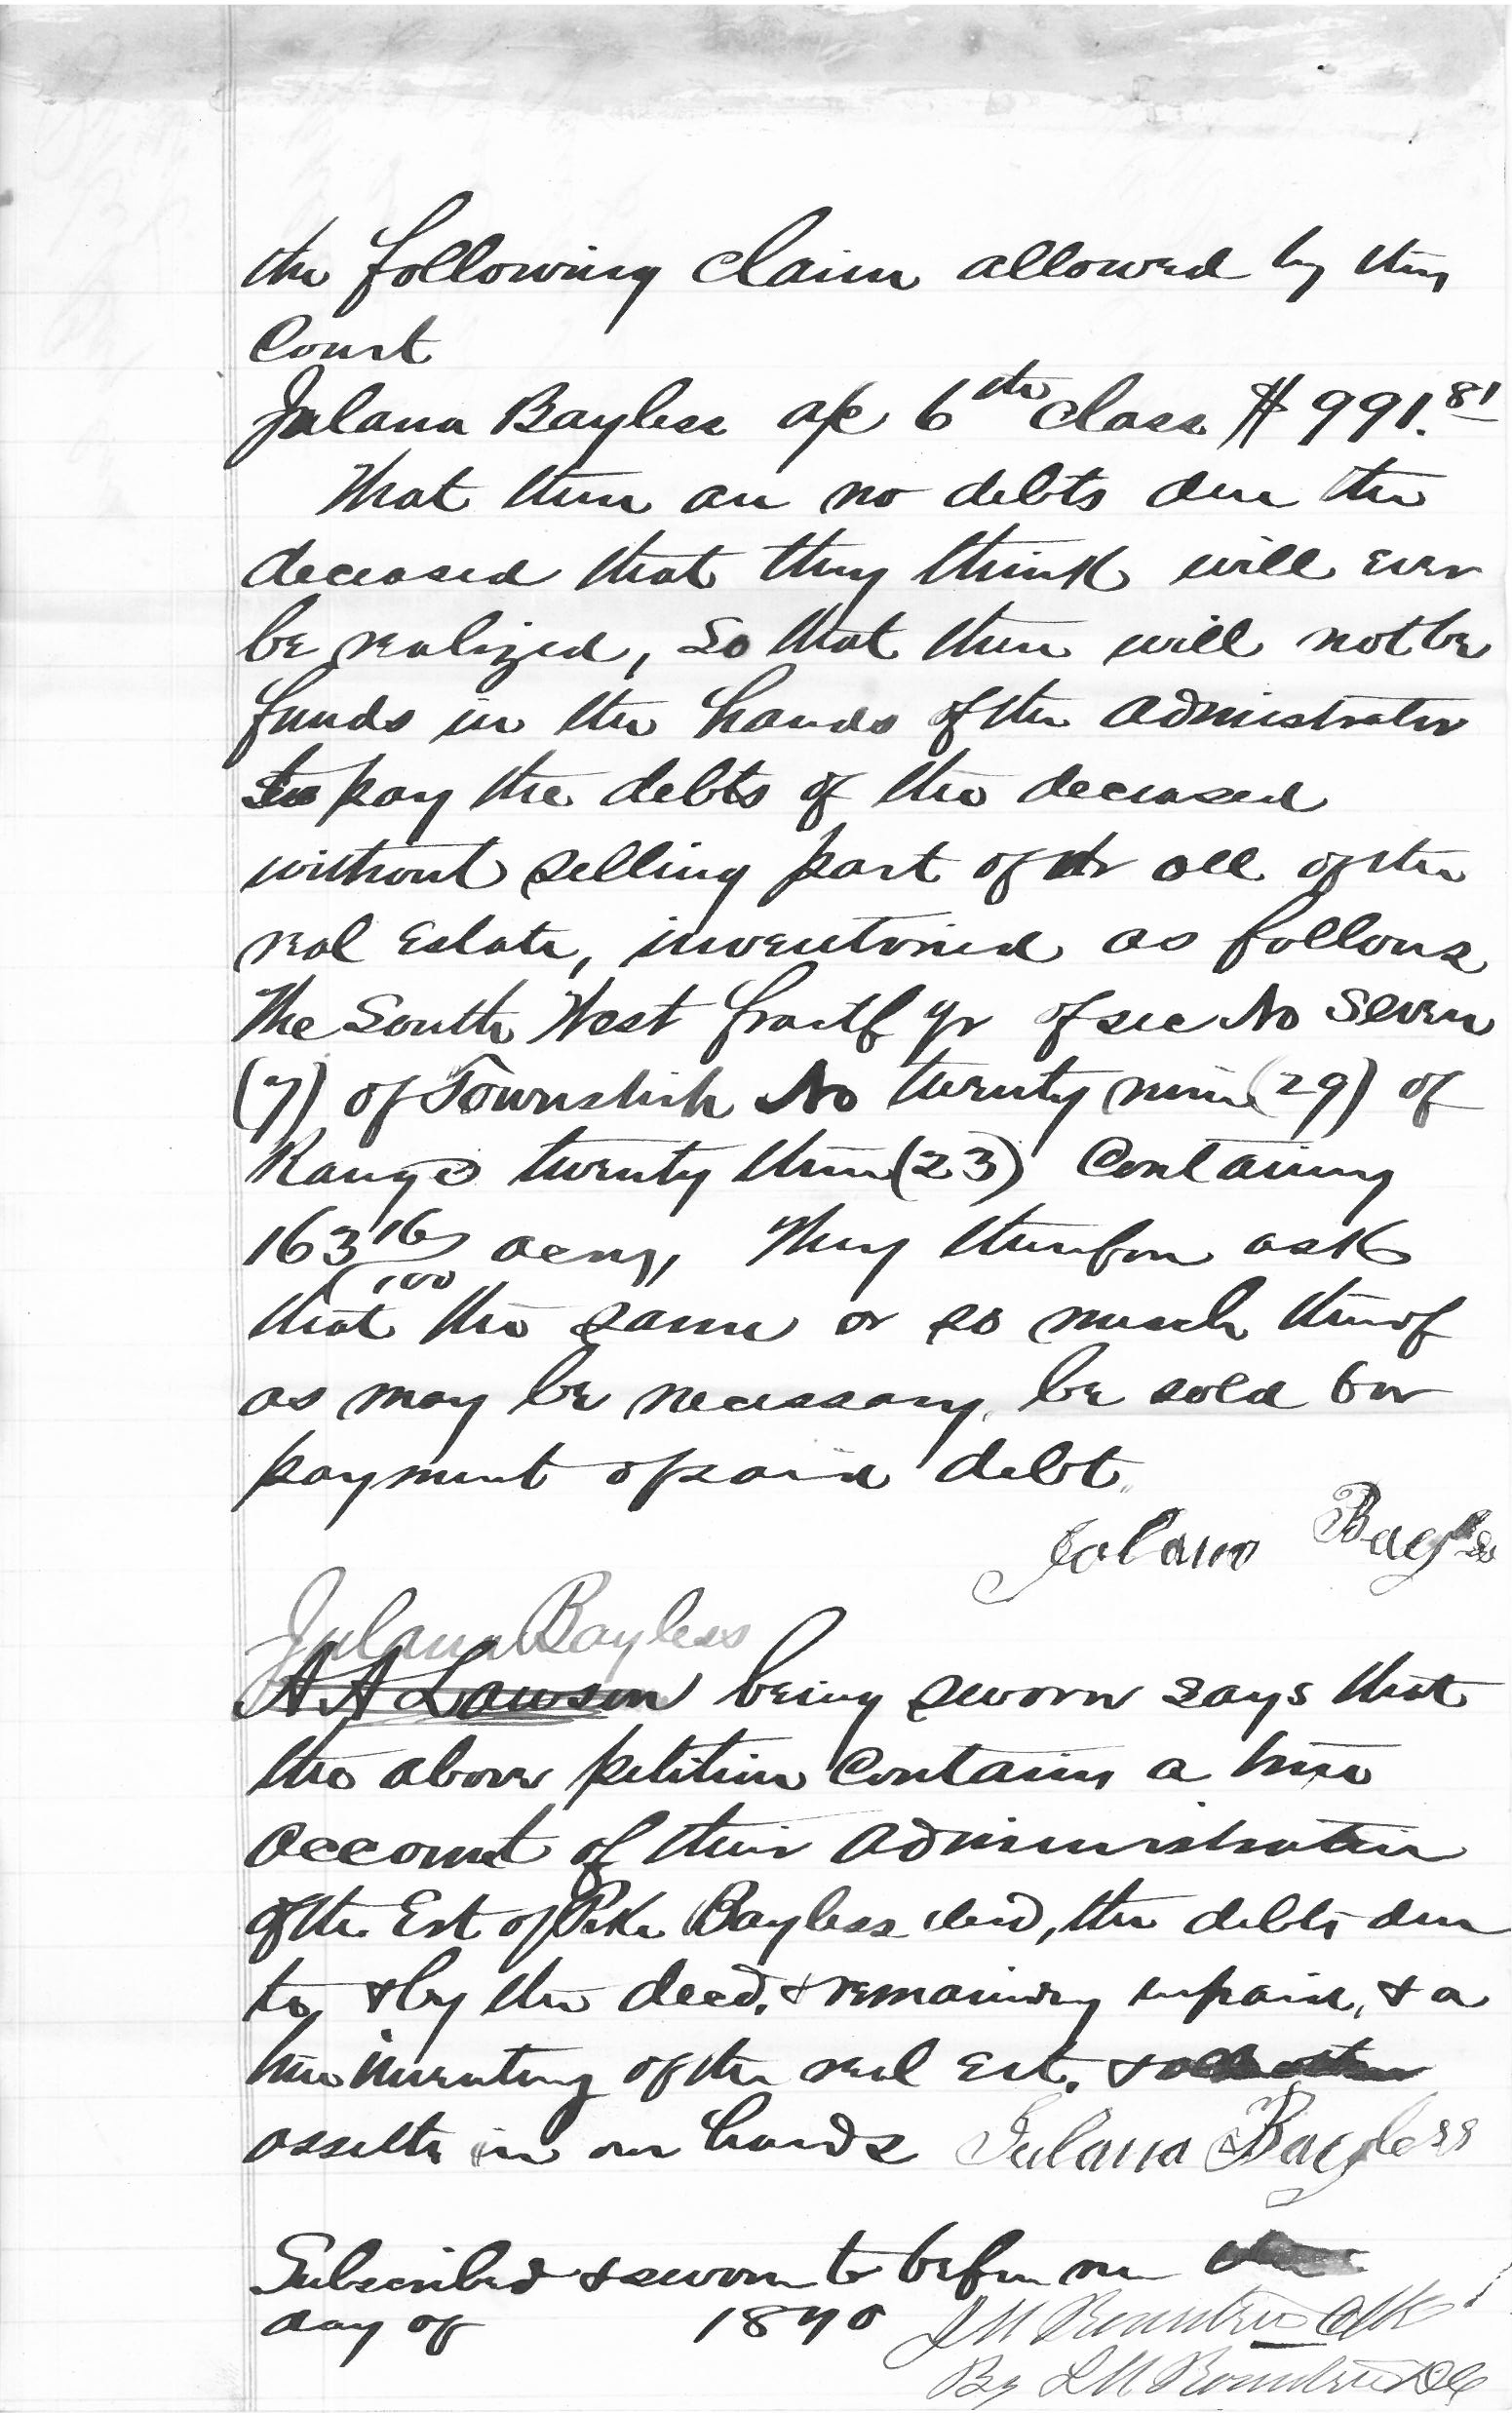 the following claim allowed by this
Court
Julana Bayless a/c 6th class $991.81
That there are no debts due the
deceased that they think will ever
be realized, so that there will not be
funds in the hands of the admistrator
to pay the debts of the deceased
without selling part of or all of the
real Estate, inventoried as follows
The South West fractl qr of sec No Seven
(7) of Township No twenty nine (29) of
Range twenty three (23) Containing
163 16/100 acres, They therefore ask
that the same or so much thereof
as may be necessary, be sold for
payment of said debt.
Julana Bayless
Julana Bayless
A A Lawson being sworn says that
the above petition Contains a true
account of their administration
of the Est of Pike Bayless decd, the debts due
to & by the decd. & remaining unpaid, & a
true inventory of the real Est. &
assetts in our hands Julana Bayless
Subscribed & sworn to before me
day of 1890 J M Rountree Clk
By L M Rountree DC